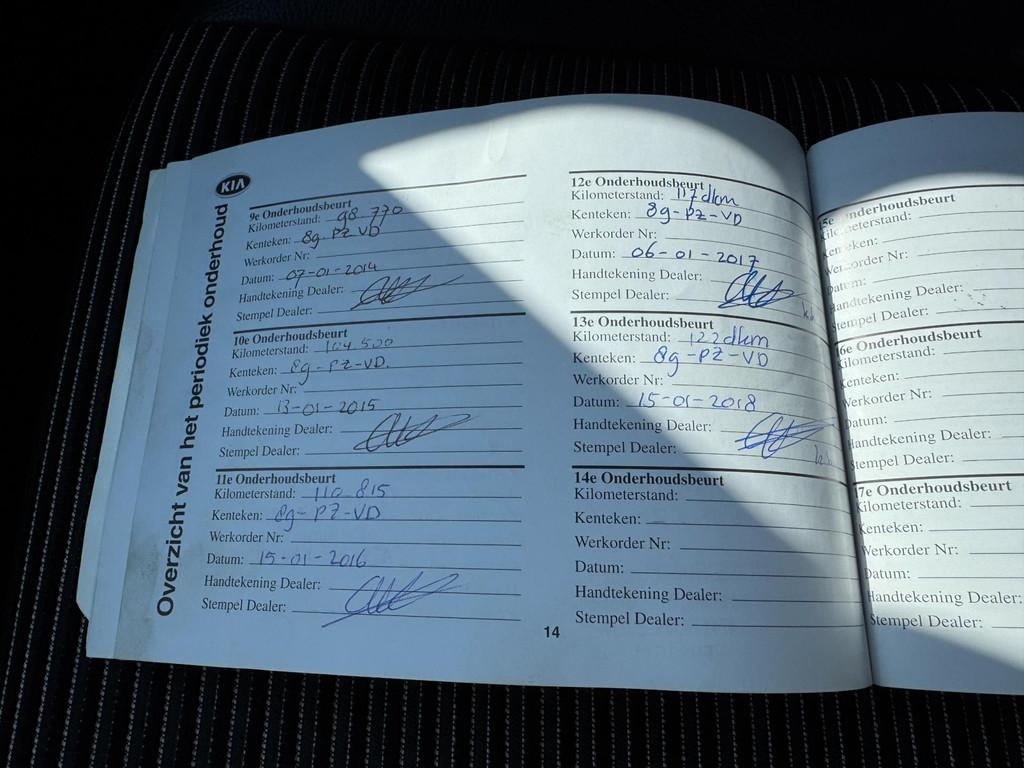 KIA
Overzicht van het periodiek onderhoud
9e Onderhoudsbeurt
Kilometerstand: 98 770
Kenteken: 8g-PZ-VD
Werkorder Nr:
Datum: 07-01-2014
Handtekening Dealer:
Stempel Dealer:
10e Onderhoudsbeurt
Kilometerstand: 104.500
Kenteken: 8g-PZ-VD.
Werkorder Nr:
Datum: 13-01-2015
Handtekening Dealer:
Stempel Dealer:
11e Onderhoudsbeurt
Kilometerstand: 110.815
Kenteken: 8g-PZ-VD
Werkorder Nr:
Datum: 15-01-2016
Handtekening Dealer:
Stempel Dealer:
12e Onderhoudsbeurt
Kilometerstand: 117dkm
Kenteken: 8g-PZ-VD
Werkorder Nr:
Datum: 06-01-2017
Handtekening Dealer:
Stempel Dealer:
13e Onderhoudsbeurt
Kilometerstand: 122dkm
Kenteken: 8g-PZ-VD
Werkorder Nr:
Datum: 15-01-2018
Handtekening Dealer:
Stempel Dealer:
14e Onderhoudsbeurt
Kilometerstand:
Kenteken:
Werkorder Nr:
Datum:
Handtekening Dealer:
Stempel Dealer:
14
5e Onderhoudsbeurt
Kilometerstand:
Kenteken:
Werkorder Nr:
Datum:
Handtekening Dealer:
Stempel Dealer:
6e Onderhoudsbeurt
Kilometerstand:
Kenteken:
Werkorder Nr:
Datum:
Handtekening Dealer:
Stempel Dealer:
7e Onderhoudsbeurt
Kilometerstand:
Kenteken:
Werkorder Nr:
Datum:
Handtekening Dealer:
Stempel Dealer: